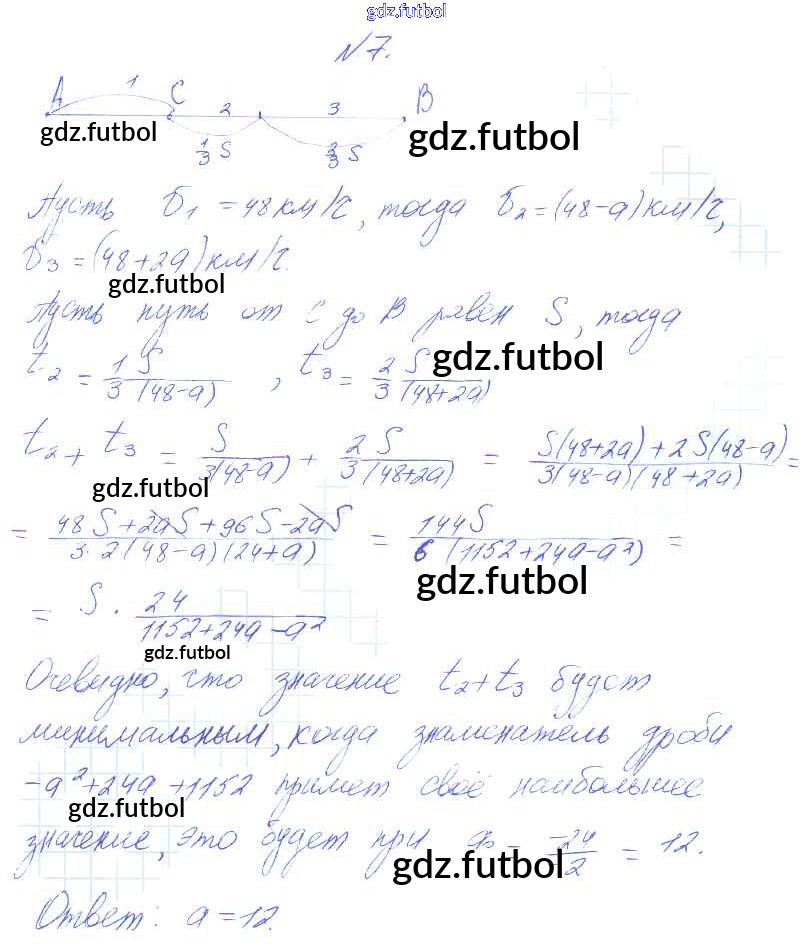 gdz.futbol
N 7.
A 1 C 2 3 B
gdz.futbol gdz.futbol
1/3 S 2/3 S
Пусть v₁ = 48 км/ч, тогда v₂ = (48-a) км/ч,
v₃ = (48+2a) км/ч.
gdz.futbol
Пусть путь от C до B равен S, тогда
gdz.futbol
t₂ = 1/3 S/(48-a) , t₃ = 2/3 S/(48+2a)
t₂ + t₃ = S/3(48-a) + 2S/3(48+2a) = S(48+2a)+2S(48-a)/3(48-a)(48+2a) =
gdz.futbol
= 48S+2aS+96S-2aS/3·2(48-a)(24+a) = 144S/6(1152+24a-a²) =
gdz.futbol
= S · 24/1152+24a-a²
gdz.futbol
Очевидно, что значение t₂+t₃ будет
минимальным, когда знаменатель дроби
-a²+24a+1152 примет своё наибольшее
gdz.futbol
значение, это будет при a₀ = -24/-2 = 12.
gdz.futbol
Ответ: a = 12.